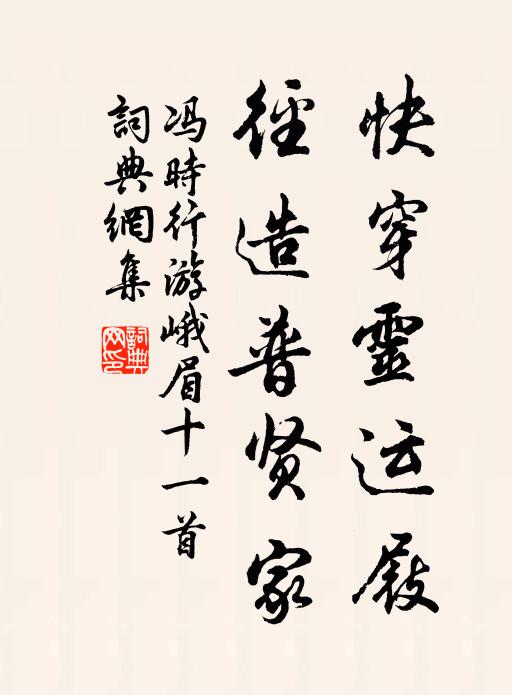 快穿靈运屐
徑造普贤家
冯時行游峨眉十一首
詞典網集
詞典網印